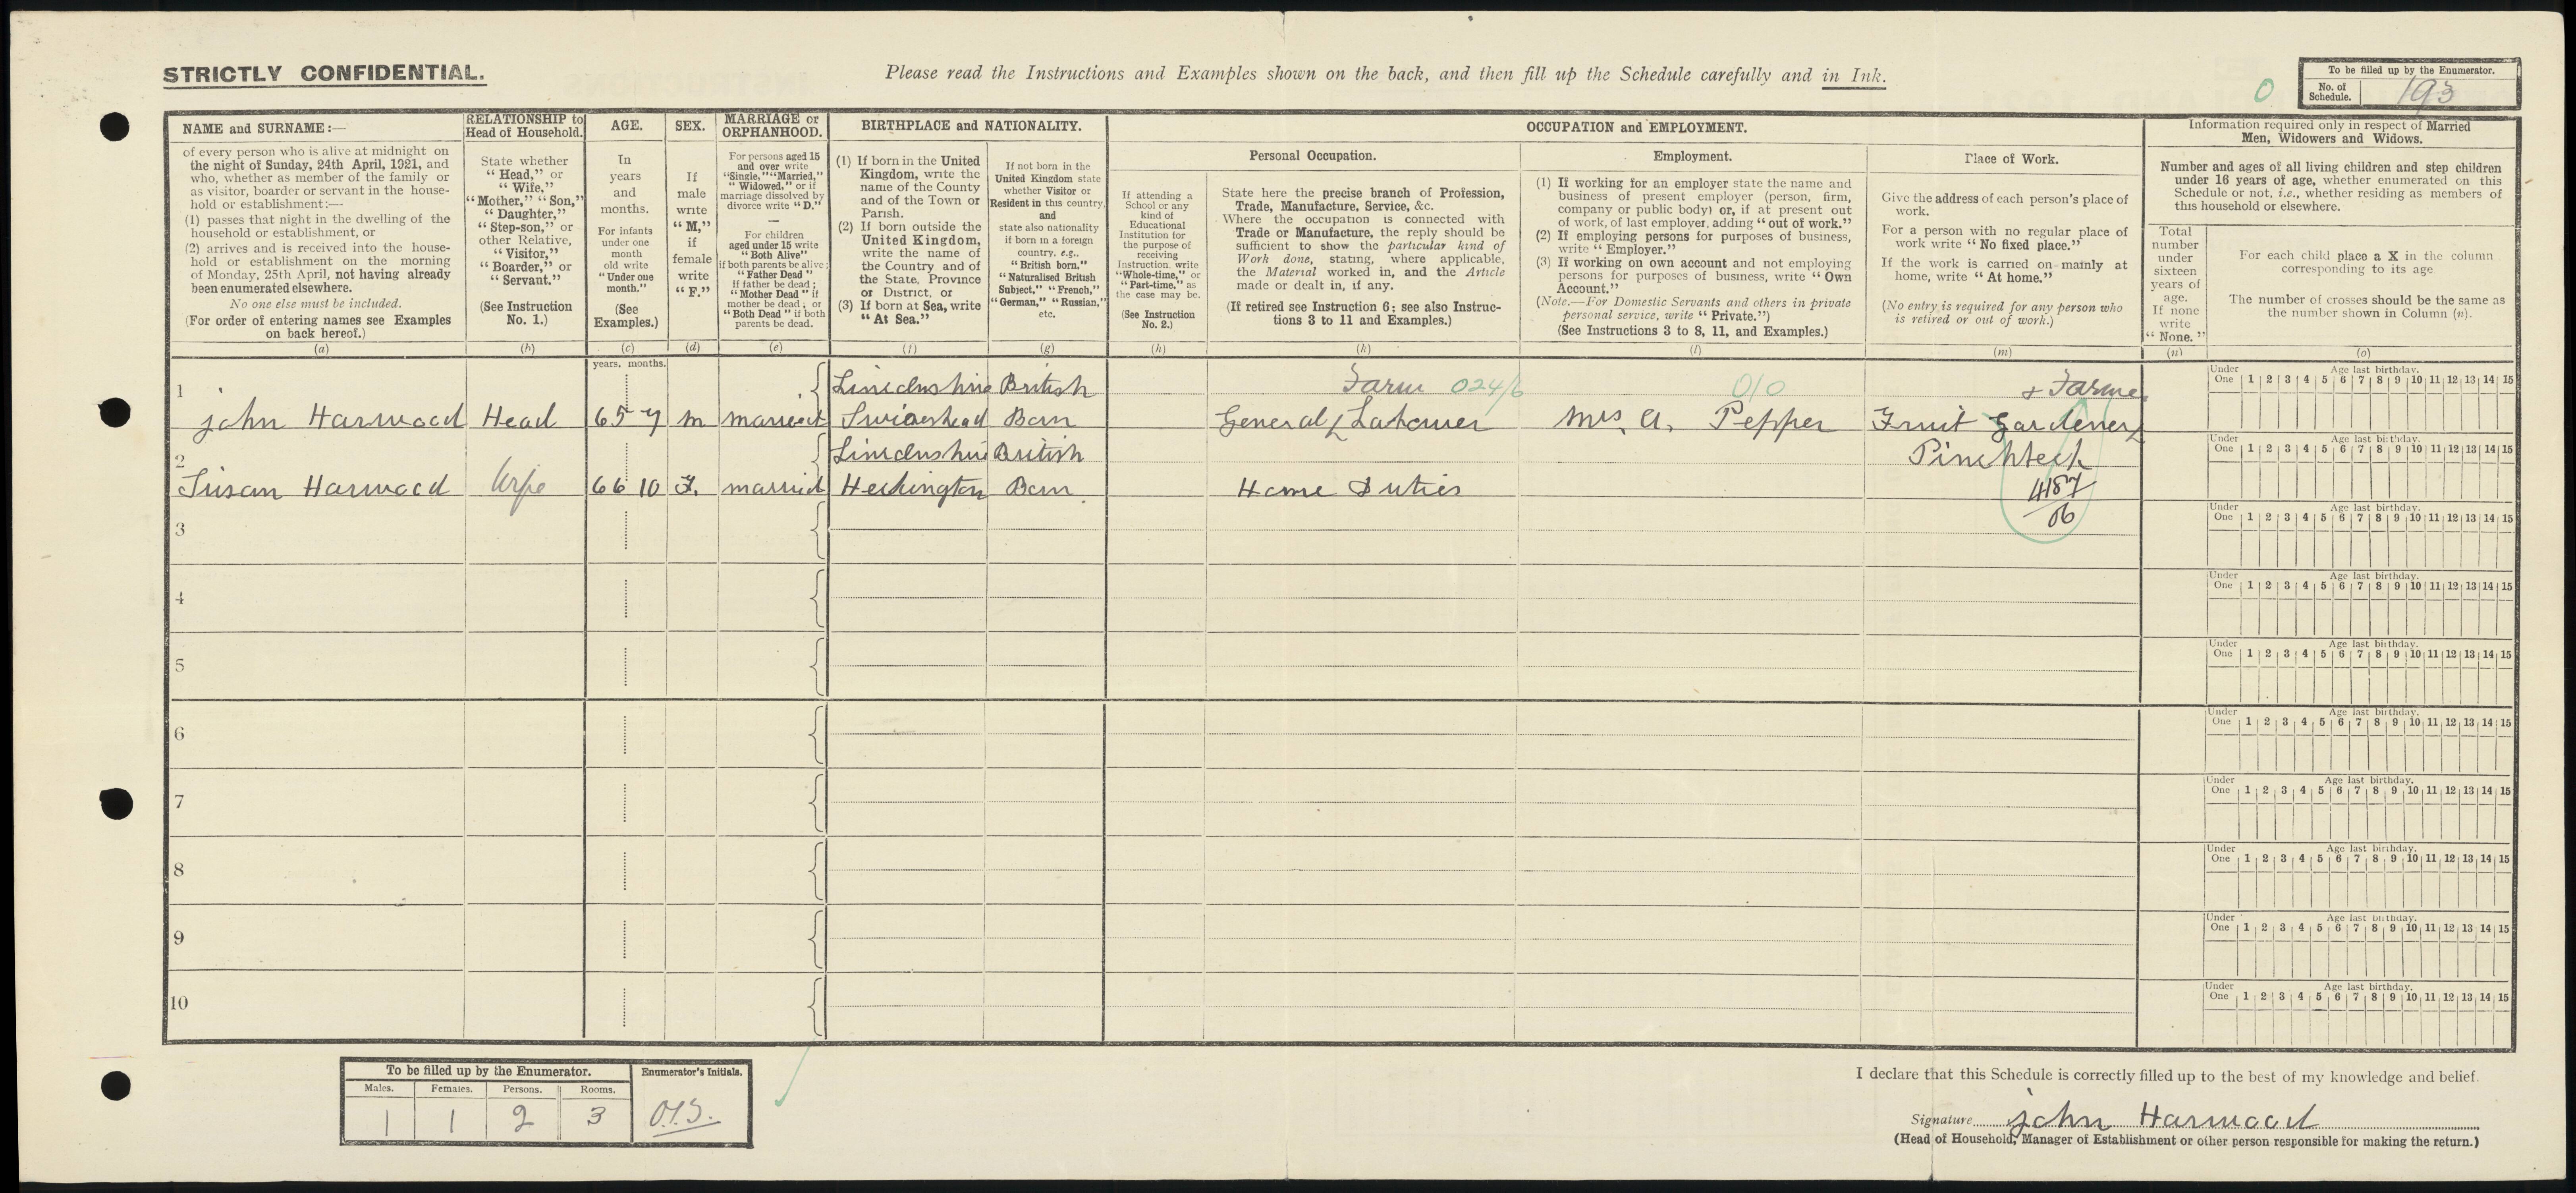 STRICTLY CONFIDENTIAL.
Please read the Instructions and Examples shown on the back, and then fill up the Schedule carefully and in Ink.
0
To be filled up by the Enumerator.
No. of Schedule. 193
NAME and SURNAME :—
of every person who is alive at midnight on
the night of Sunday, 24th April, 1921, and
who, whether as member of the family or
as visitor, boarder or servant in the house-
hold or establishment :—
(1) passes that night in the dwelling of the
household or establishment, or
(2) arrives and is received into the house-
hold or establishment on the morning
of Monday, 25th April, not having already
been enumerated elsewhere.
No one else must be included.
(For order of entering names see Examples
on back hereof.)
(a)
RELATIONSHIP to
Head of Household.
State whether
"Head," or
"Wife,"
"Mother," "Son,"
"Daughter,"
"Step-son," or
other Relative,
"Visitor,"
"Boarder," or
"Servant."
(See Instruction
No. 1.)
(b)
AGE.
In
years
and
months.
For infants
under one
month
old write
"Under one
month."
(See
Examples.)
(c)
SEX.
If
male
write
"M,"
if
female
write
"F."
(d)
MARRIAGE or
ORPHANHOOD.
For persons aged 15
and over write
"Single," "Married,"
"Widowed," or if
marriage dissolved by
divorce write "D."
—
For children
aged under 15 write
"Both Alive"
if both parents be alive;
"Father Dead"
if father be dead;
"Mother Dead" if
mother be dead; or
"Both Dead" if both
parents be dead.
(e)
BIRTHPLACE and NATIONALITY.
(1) If born in the United
Kingdom, write the
name of the County
and of the Town or
Parish.
(2) If born outside the
United Kingdom,
write the name of
the Country and of
the State, Province
or District, or
(3) If born at Sea, write
"At Sea."
(f)
If not born in the
United Kingdom state
whether Visitor or
Resident in this country,
and
state also nationality
if born in a foreign
country. e.g.,
"British born,"
"Naturalised British
Subject," "French,"
"German," "Russian,"
etc.
(g)
OCCUPATION and EMPLOYMENT.
If attending a
School or any
kind of
Educational
Institution for
the purpose of
receiving
Instruction, write
"Whole-time," or
"Part-time," as
the case may be.
(See Instruction
No. 2.)
(h)
Personal Occupation.
State here the precise branch of Profession,
Trade, Manufacture, Service, &c.
Where the occupation is connected with
Trade or Manufacture, the reply should be
sufficient to show the particular kind of
Work done, stating, where applicable,
the Material worked in, and the Article
made or dealt in, if any.
(If retired see Instruction 6; see also Instruc-
tions 3 to 11 and Examples.)
(k)
Employment.
(1) If working for an employer state the name and
business of present employer (person, firm,
company or public body) or, if at present out
of work, of last employer, adding "out of work."
(2) If employing persons for purposes of business,
write "Employer."
(3) If working on own account and not employing
persons for purposes of business, write "Own
Account."
(Note.—For Domestic Servants and others in private
personal service, write "Private.")
(See Instructions 3 to 8, 11, and Examples.)
(l)
Place of Work.
Give the address of each person's place of
work.
For a person with no regular place of
work write "No fixed place."
If the work is carried on mainly at
home, write "At home."
(No entry is required for any person who
is retired or out of work.)
(m)
Information required only in respect of Married
Men, Widowers and Widows.
Number and ages of all living children and step children
under 16 years of age, whether enumerated on this
Schedule or not, i.e., whether residing as members of
this household or elsewhere.
Total
number
under
sixteen
years of
age.
If none
write
"None."
(n)
For each child place a X in the column
corresponding to its age
The number of crosses should be the same as
the number shown in Column (n).
(o)
years. months.
1
Lincolnshire British Farm 024/6 0/0 & Farmer
john Harwood Head 65 7 m married Swineshead Born General Labourer Mrs. A. Pepper Fruit Gardener
2
Lincolnshire British Pinchbeck
Susan Harwood Wife 66 10 F. married Heckington Born Home Duties 4187
06
3
4
5
6
7
8
9
10
Under Age last birthday.
One 1 2 3 4 5 6 7 8 9 10 11 12 13 14 15
Under Age last birthday.
One 1 2 3 4 5 6 7 8 9 10 11 12 13 14 15
Under Age last birthday.
One 1 2 3 4 5 6 7 8 9 10 11 12 13 14 15
Under Age last birthday.
One 1 2 3 4 5 6 7 8 9 10 11 12 13 14 15
Under Age last birthday.
One 1 2 3 4 5 6 7 8 9 10 11 12 13 14 15
Under Age last birthday.
One 1 2 3 4 5 6 7 8 9 10 11 12 13 14 15
Under Age last birthday.
One 1 2 3 4 5 6 7 8 9 10 11 12 13 14 15
Under Age last birthday.
One 1 2 3 4 5 6 7 8 9 10 11 12 13 14 15
Under Age last birthday.
One 1 2 3 4 5 6 7 8 9 10 11 12 13 14 15
Under Age last birthday.
One 1 2 3 4 5 6 7 8 9 10 11 12 13 14 15
To be filled up by the Enumerator.
Enumerator's Initials.
Males. Females. Persons. Rooms.
1 1 2 3
I declare that this Schedule is correctly filled up to the best of my knowledge and belief.
Signature john Harwood
(Head of Household, Manager of Establishment or other person responsible for making the return.)